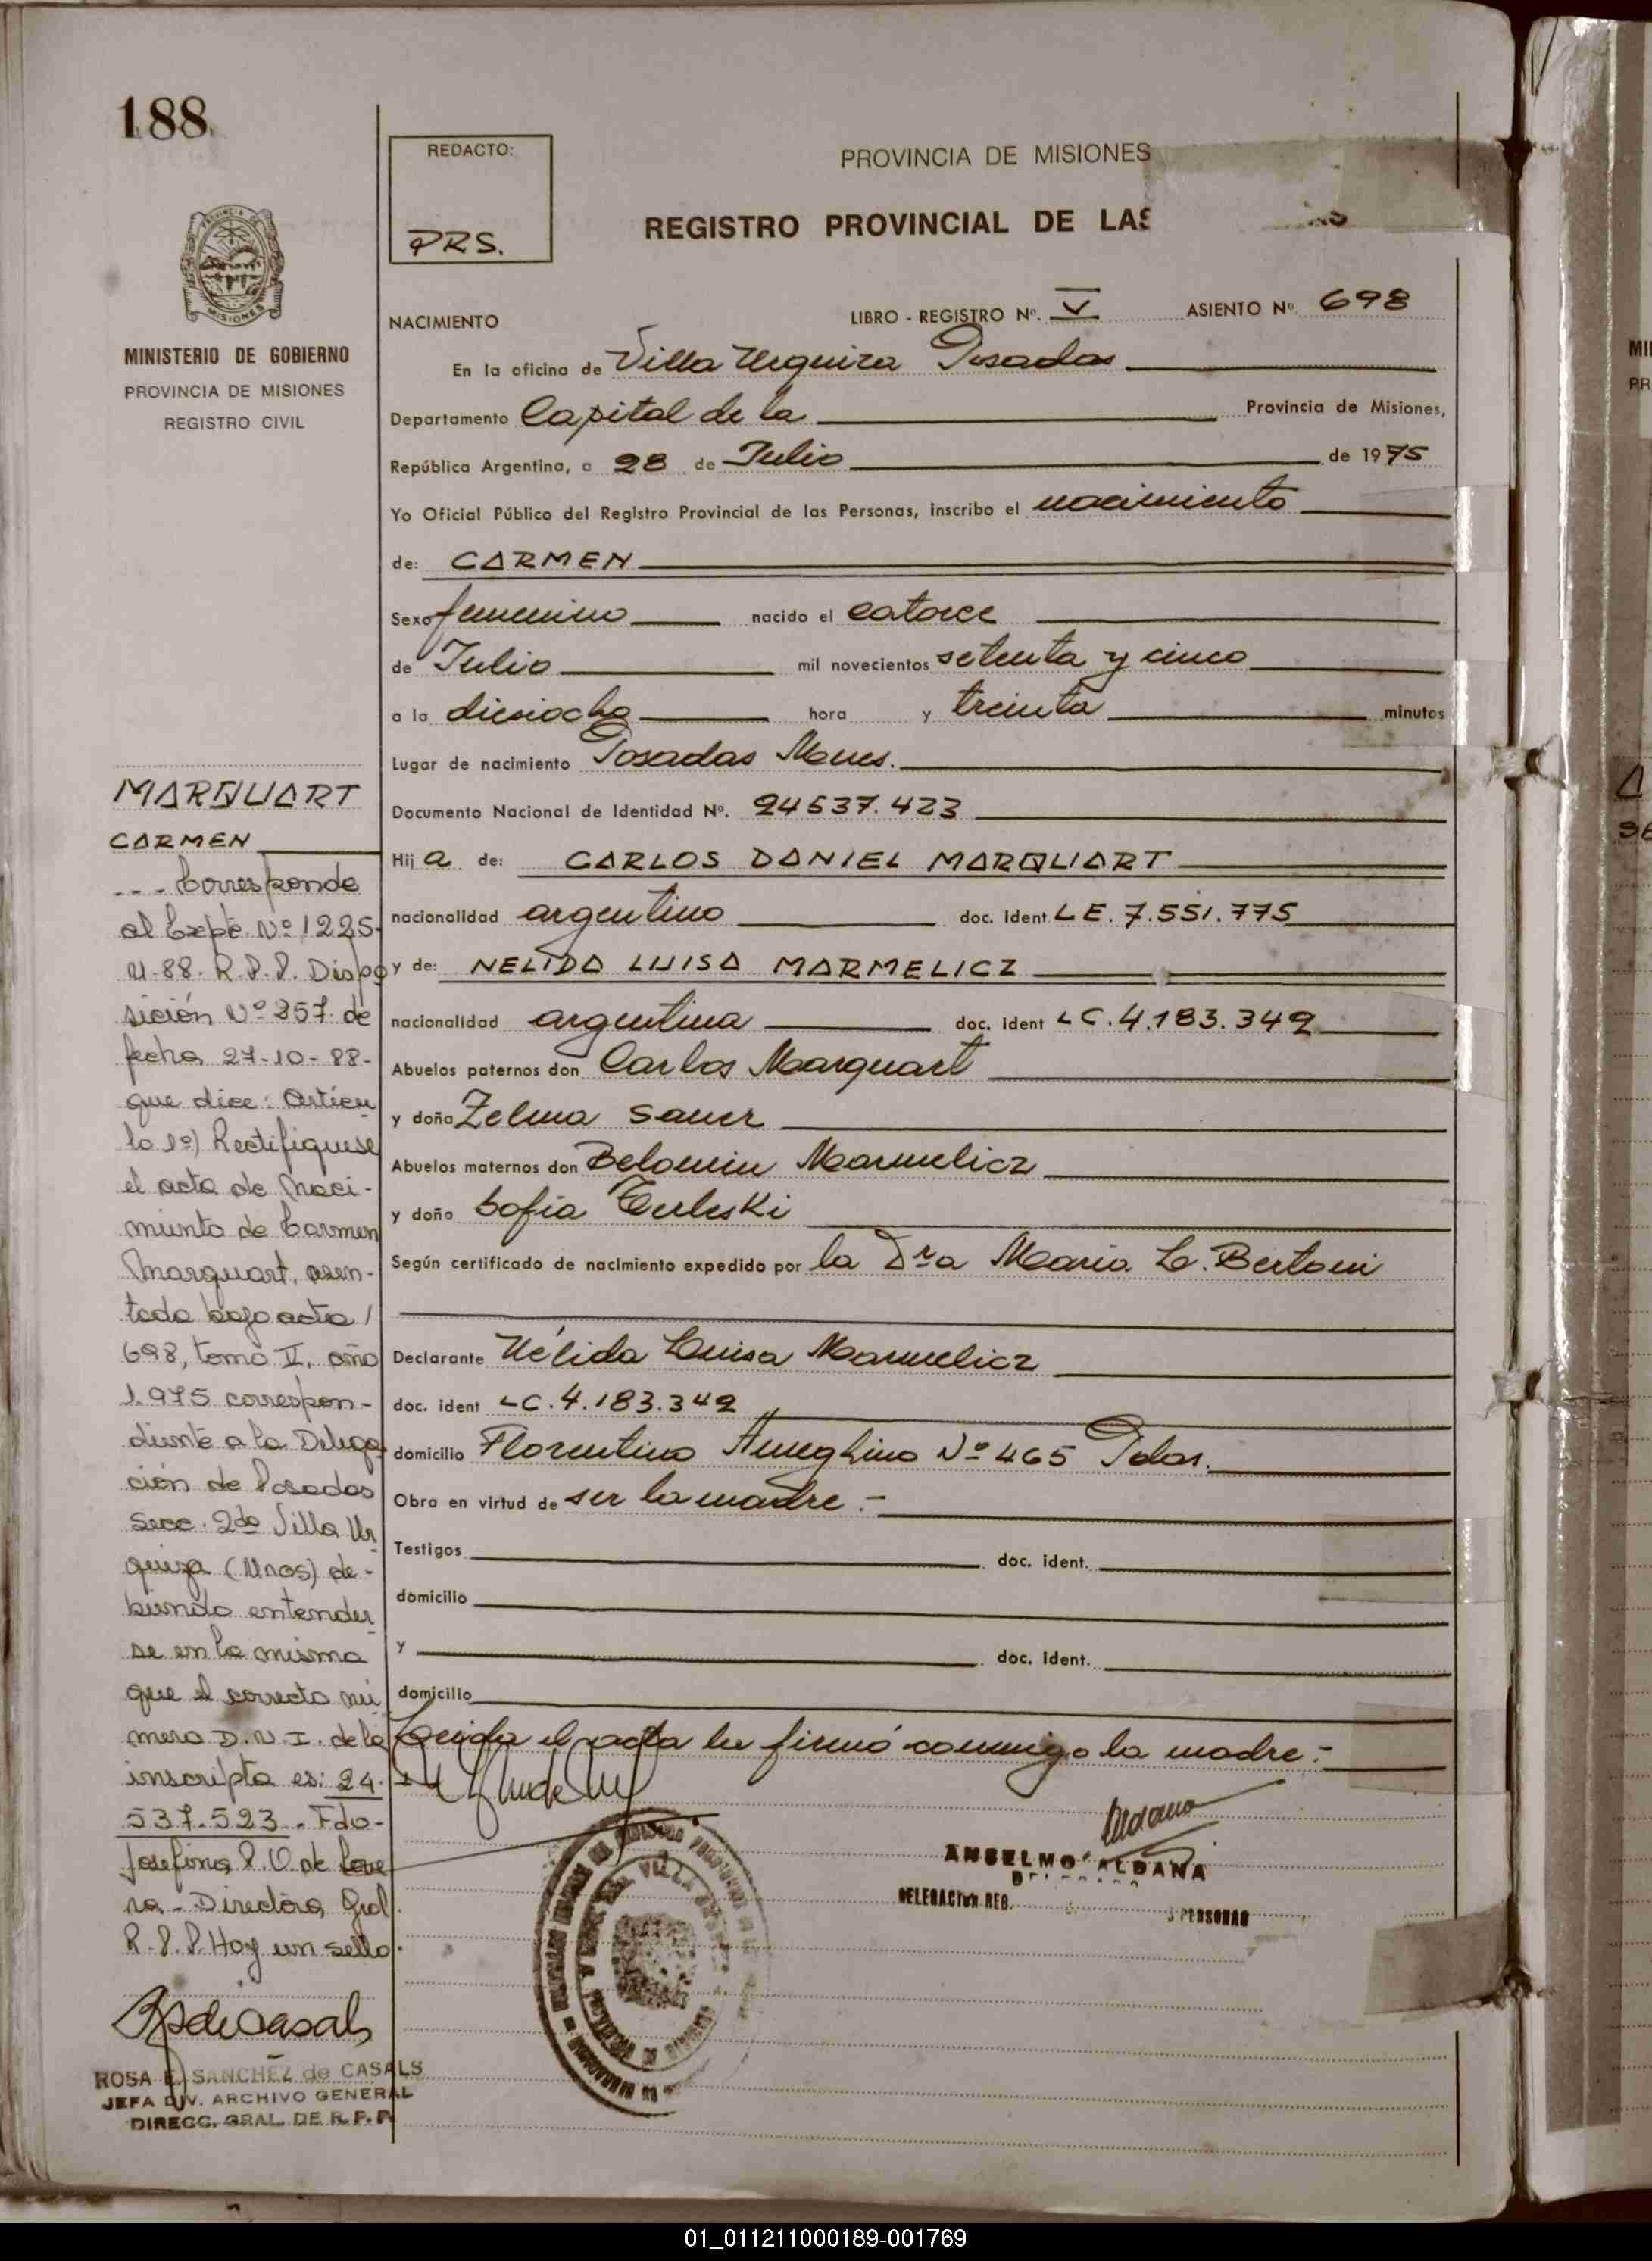 188
REDACTO:
PRS.
PROVINCIA DE MISIONES
REGISTRO PROVINCIAL DE LAS
MISIONES
MINISTERIO DE GOBIERNO
PROVINCIA DE MISIONES
REGISTRO CIVIL
NACIMIENTO LIBRO - REGISTRO Nº. V ASIENTO Nº 698
En la oficina de Villa Urquiza Posadas
Departamento Capital de la Provincia de Misiones,
República Argentina, a 28 de Julio de 1975
Yo Oficial Público del Registro Provincial de las Personas, inscribo el nacimiento
de: CARMEN
Sexo femenino nacido el catorce
de Julio mil novecientos setenta y cinco
a la dieciocho hora y treinta minutos
Lugar de nacimiento Posadas Mnes.
Documento Nacional de Identidad Nº. 24537.423
Hija de: CARLOS DANIEL MARQUART
nacionalidad argentino doc. ident. LE. 7.551.775
y de: NELIDA LUISA MARMELICZ
nacionalidad argentina doc. ident LC. 4.183.349
Abuelos paternos don Carlos Marquart
y doña Zelma Sauer
Abuelos maternos don Belomin Marmelicz
y doña Sofia
Según certificado de nacimiento expedido por la Dra Maria L. Bertoni
Declarante Nélida Luisa Marmelicz
doc. ident LC. 4.183.349
domicilio Florentino Ameghino Nº 465 Pdas.
Obra en virtud de ser la madre.-
Testigos doc. ident.
domicilio
y doc. ident.
domicilio
Leida el acta la firmó conmigo la madre.-
Aldana
ANSELMO ALDANA
DELEGACION REG. PERSONAS
MARQUART
CARMEN
--- Corresponde
al Expte. Nº 1225-
U-88. R.P.P. Dispo
sición Nº 257 de
fecha 27-10-88-
que dice: Articu
lo 1º) Rectifiquese
el acta de Naci-
miento de Carmen
Marquart, asen-
tada bajo acta /
698, tomo II, año
1.975 correspon-
diente a la Delega
ción de Posadas
Secc. 2da Villa Ur
quiza (Mnes) de-
biendo entender
se en la misma
que el correcto nú
mero D.N.I. de la
inscripta es: 24.
537.523. Fdo-
Josefina P.V. de
ra - Directora Gral.
R.P.P. Hay un sello.
ROSA E. SANCHEZ de CASALS
JEFA DIV. ARCHIVO GENERAL
DIRECC. GRAL. DE R.P.P.
01_011211000189-001769